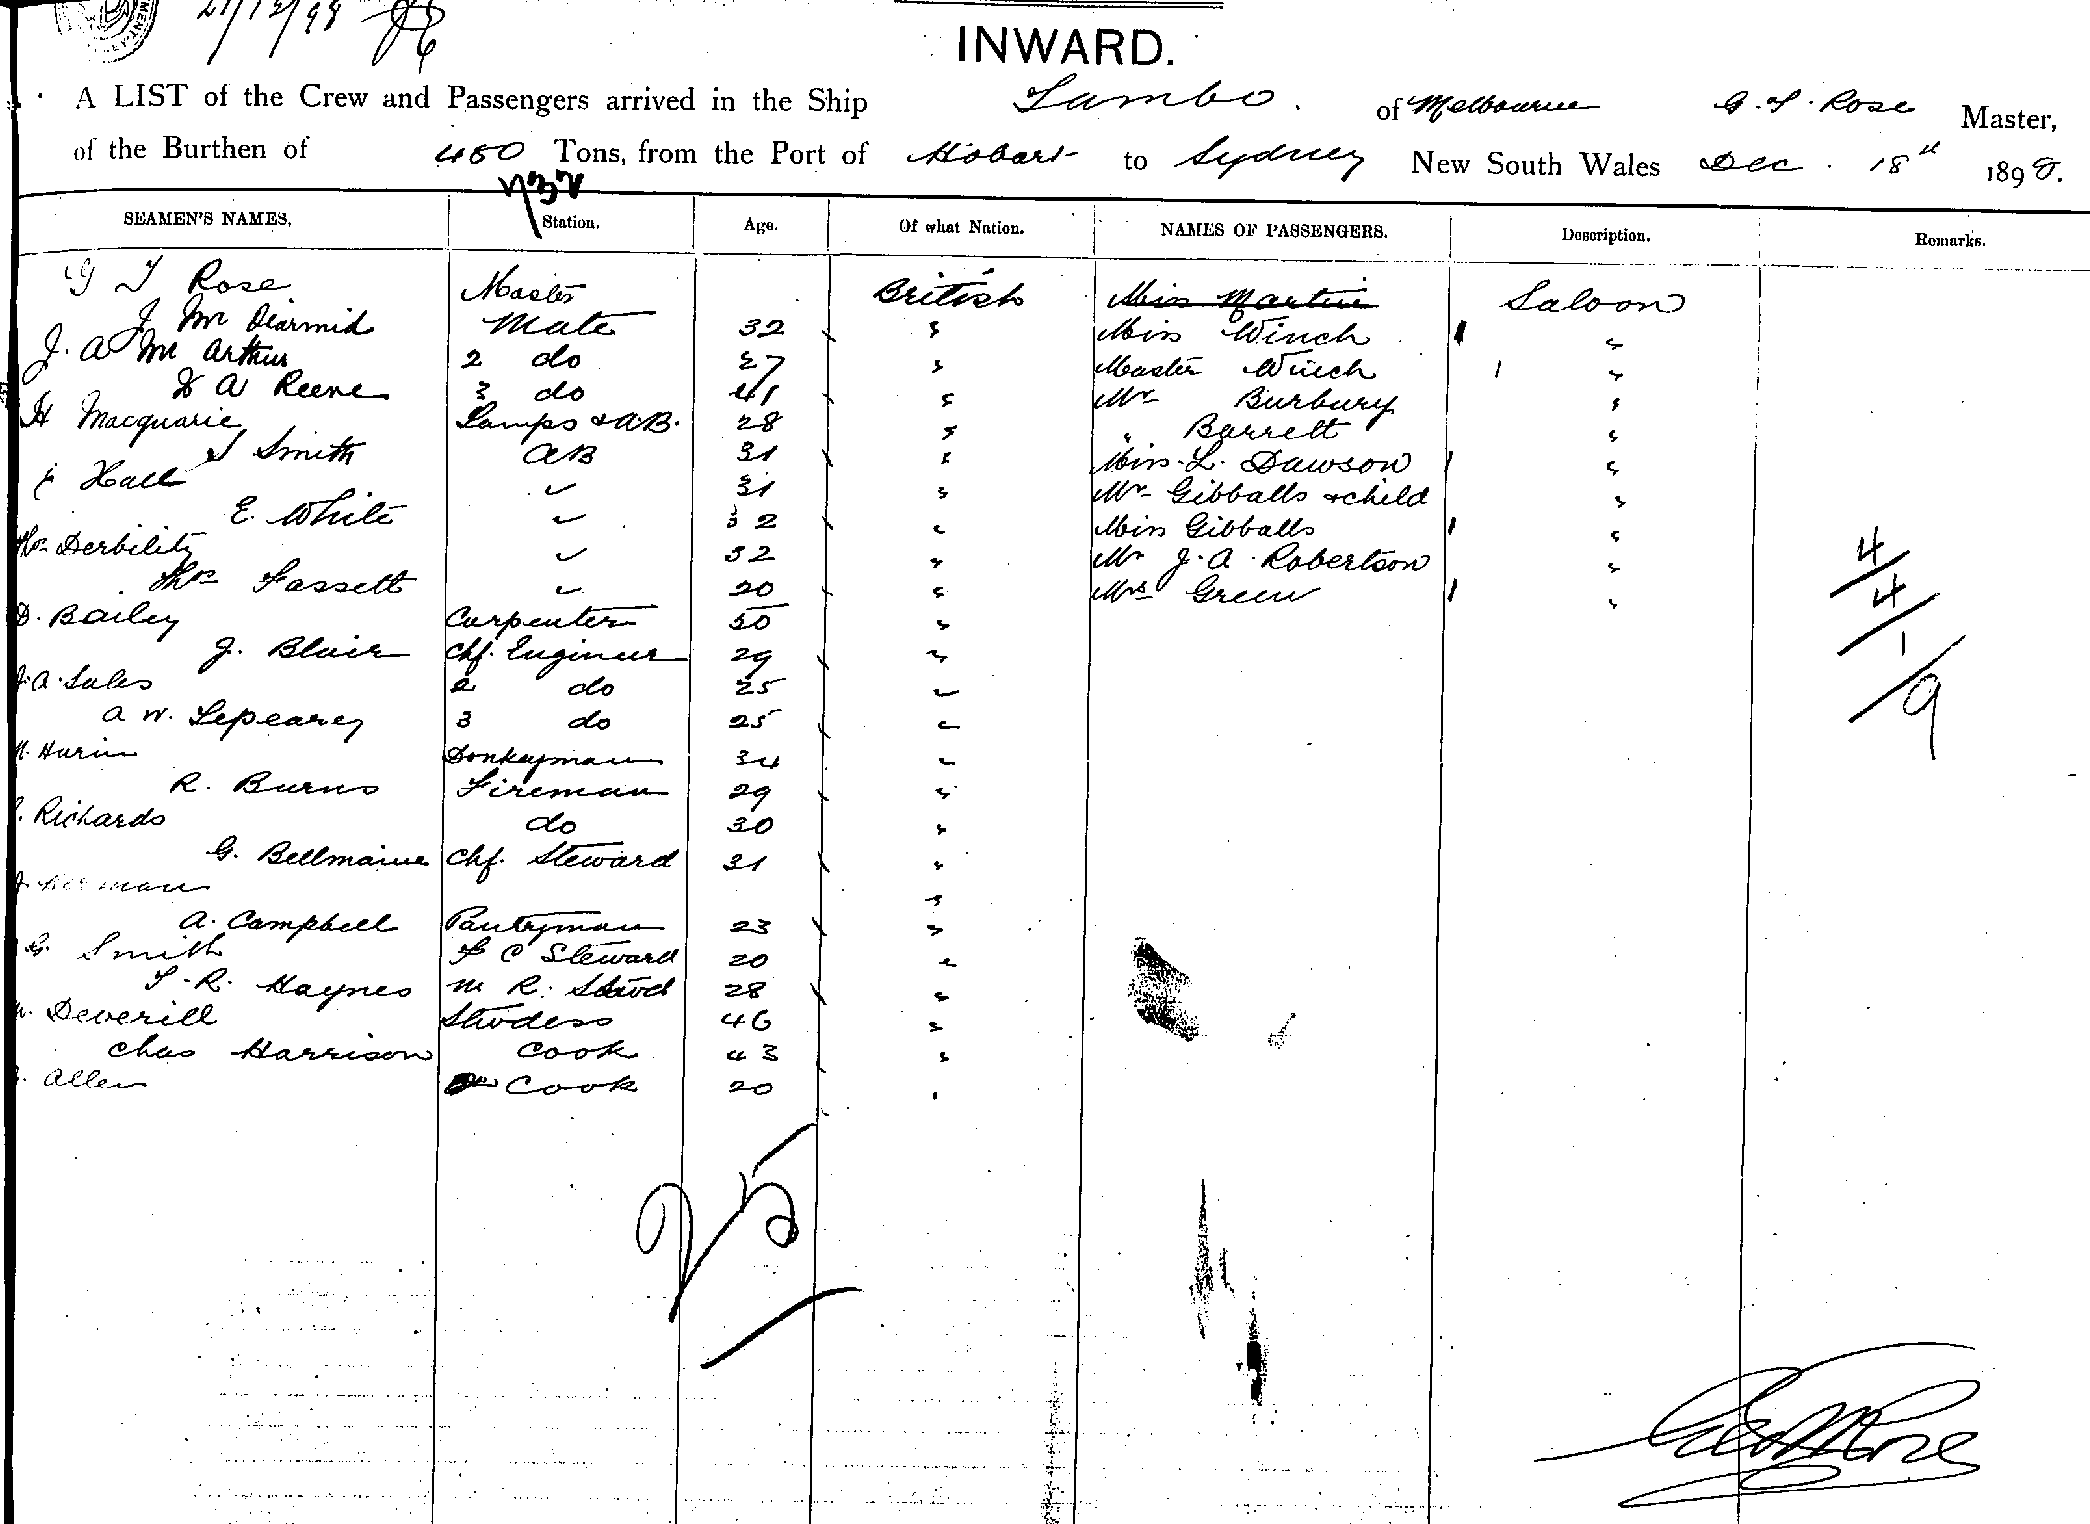 21/12/98
INWARD.
A LIST of the Crew and Passengers arrived in the Ship Sambo. of Melbourne G. T. Rose Master,
of the Burthen of 450 Tons, from the Port of Hobart to Sydney New South Wales Dec. 18th 1898.
732
SEAMEN'S NAMES. Station. Age. Of what Nation. NAMES OF PASSENGERS. Description. Remarks.
G T Rose Master British Miss Martin Saloon
J McDiarmid Mate 32 " Miss Winch 1 "
J. A McArthur 2 do 27 " Master Winch 1 "
A Reene 3 do 41 " Mr Burbury "
H Macquarie Lamps & AB. 28 " " Barrett "
Smith AB 31 " Miss L. Dawson 1 "
Hall " 31 " Mr Gibballs & child "
E. White " 32 " Miss Gibballs 1 "
Thos Derbility " 32 " Mr J. A. Robertson "
Thos Fassett " 20 " Mrs Green 1 "
D. Bailey Carpenter 50 "
J. Blair Chf. Engineer 29 "
J. A. Sales 2 do 25 "
A W. Lepearey 3 do 25 "
Donkeyman 34 "
R. Burns Fireman 29 "
Richards do 30 "
G. Bellmaine Chf. Steward 31 "
"
A. Campbell Pantryman 23 "
G. Smith F C Steward 20 "
R. Haynes M R. Stwd 28 "
Deverill Stwdess 46 "
Chas Harrison Cook 43 "
Allen Cook 20 "
4/4/1/9
25